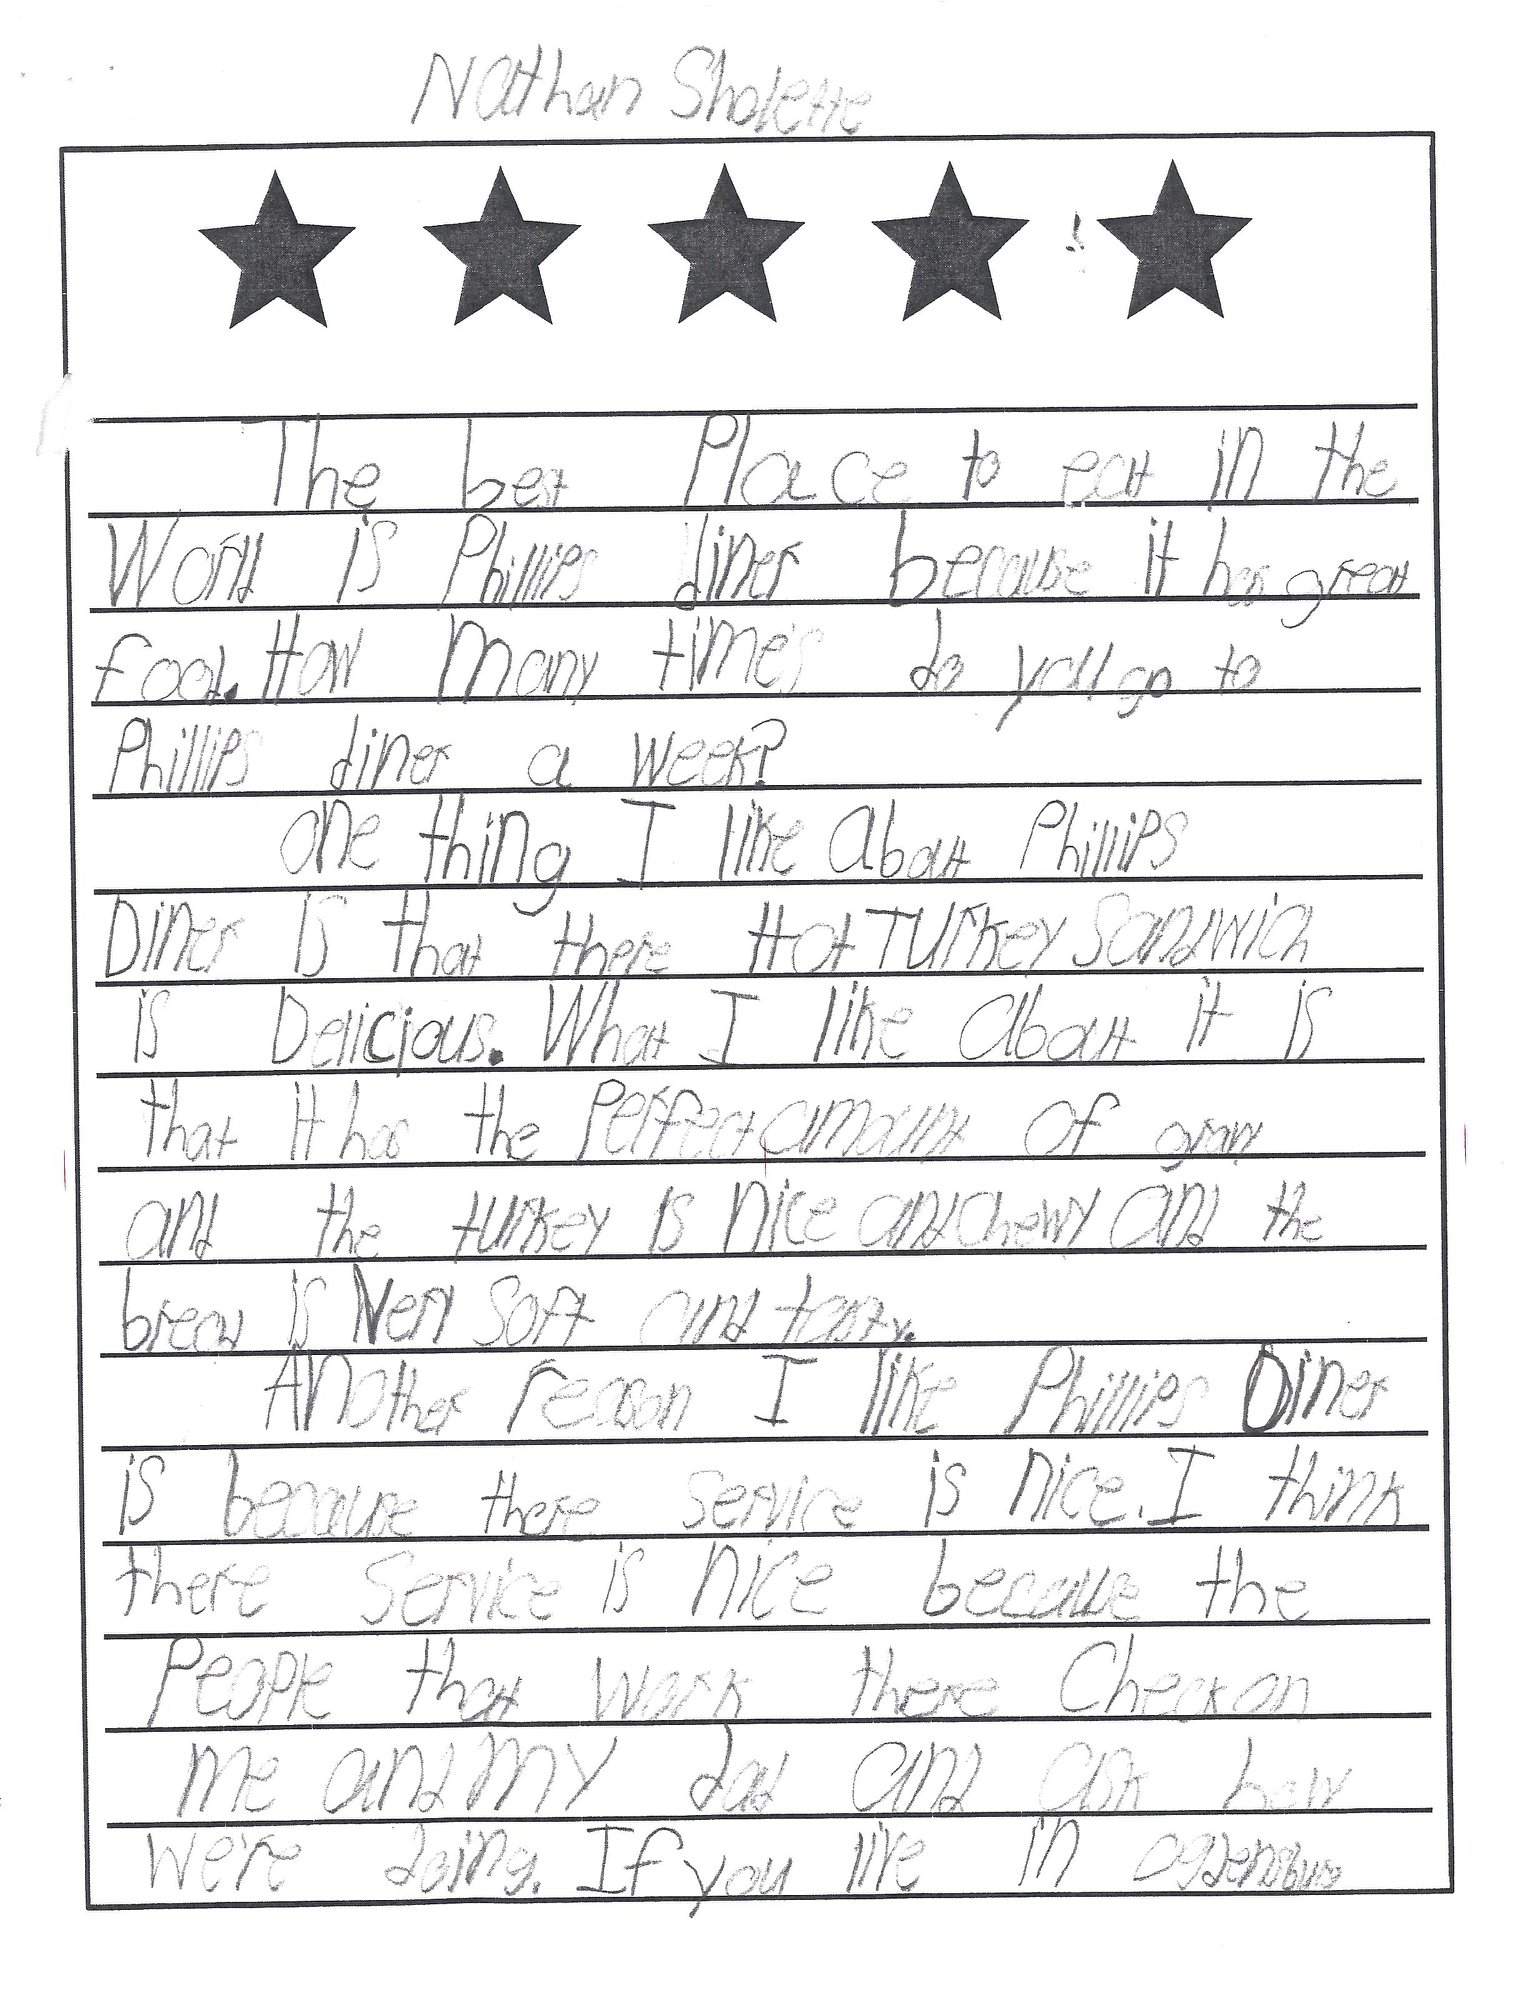 Nathan Sholette
The best Place to eat in the
World is Phillips diner because it has great
food. How many times do you go to
Phillips diner a week?
one thing I like About Phillips
Diner is that there Hot TUrkey Sandwich
is Delicious. What I like about it is
that it has the Perfect amount of gravy
and the turkey is nice and chewy and the
bread is Very Soft and tasty.
Another reason I like Phillips Diner
is because there service is nice. I think
there Service is nice because the
People that work there Check on
me and my dad and ask how
we're doing. If you live in Ogdensburg